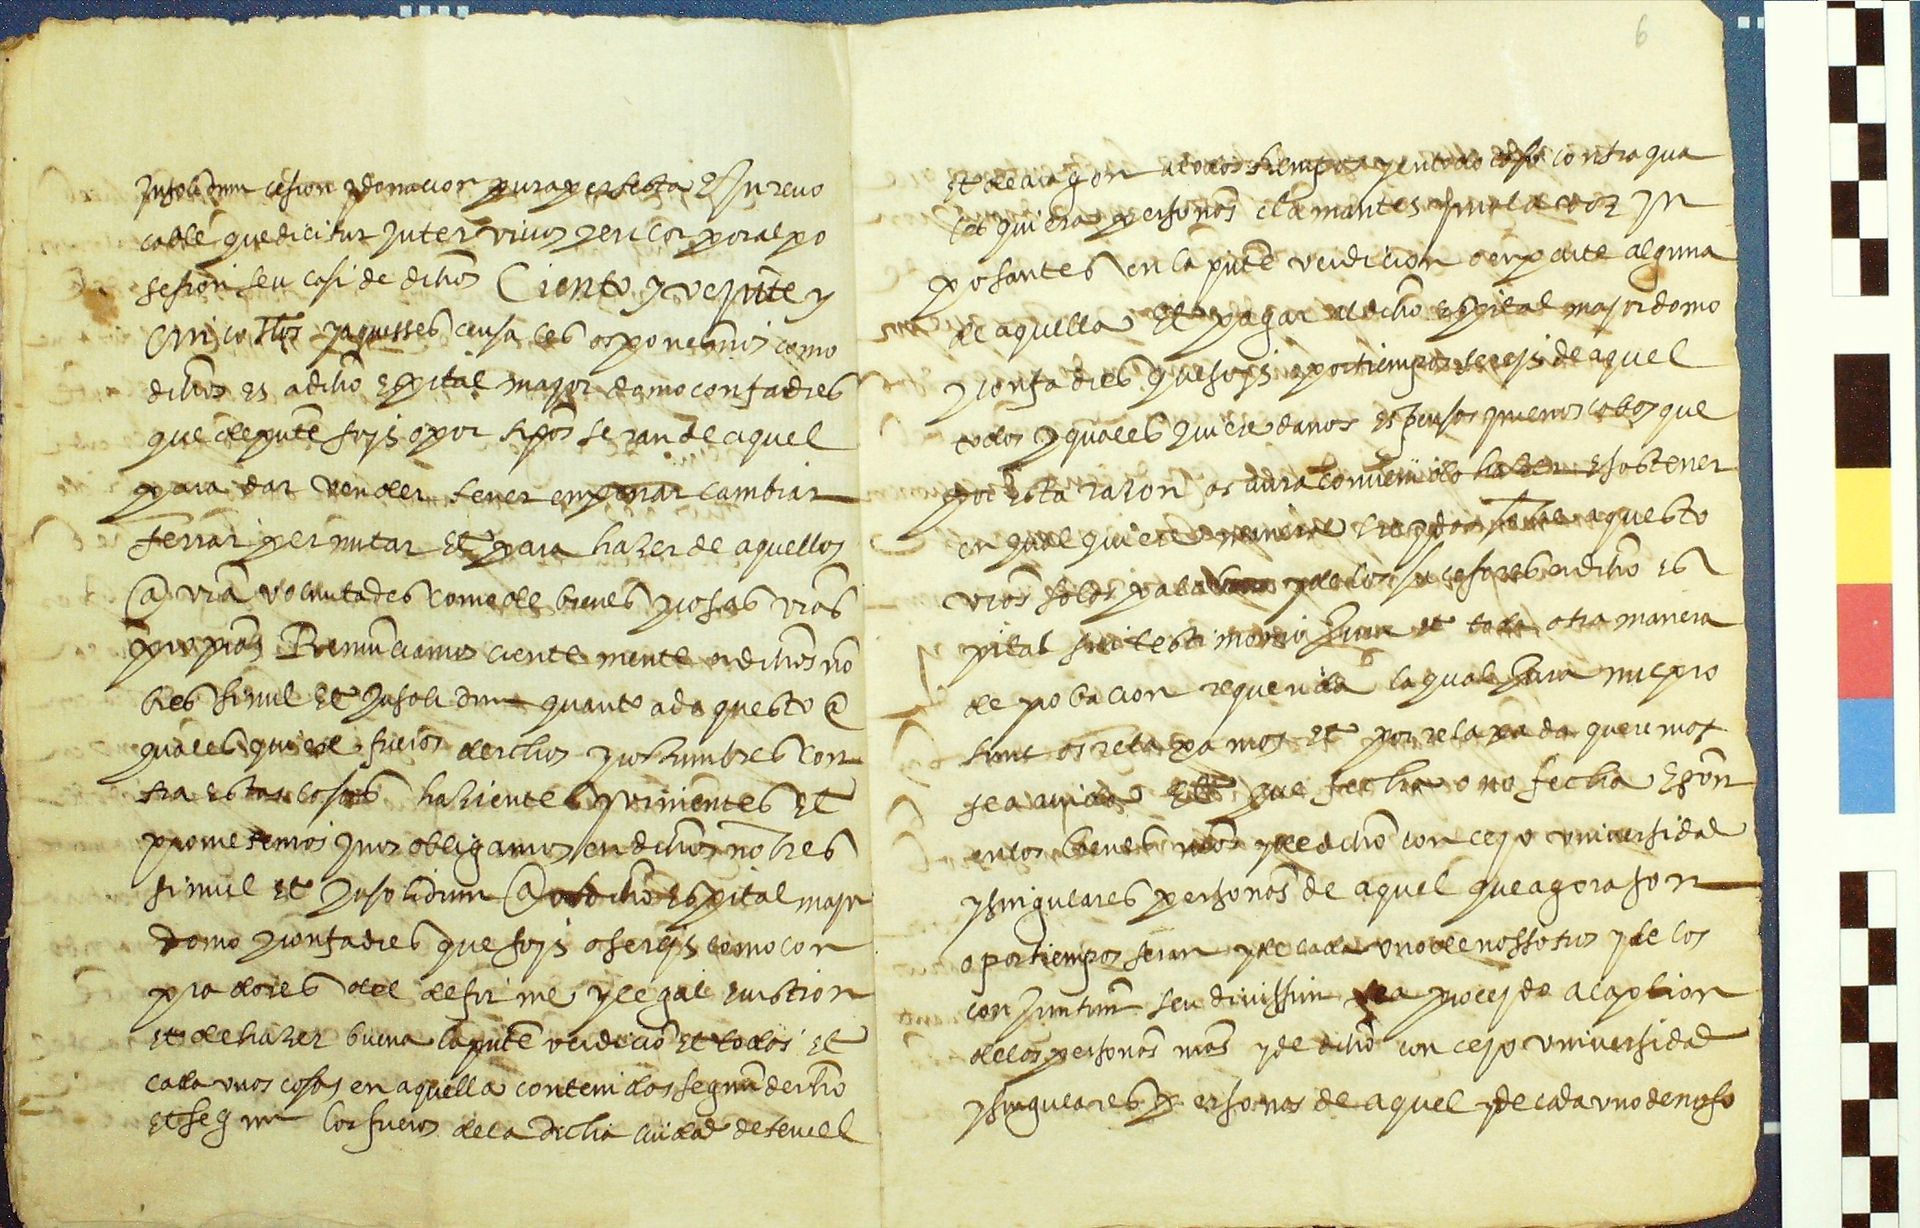 Insolidum cesion y donacion pura perfecta et Inrevo
cable que dicitur Inter vivos Jeri corporal po
sesion seu casi de dichos Ciento y veynte y
cinco ss Jaquesses censales os ponemos como
dicho es a dicho espital mayordomo confadres
que de pnte soys o por tpos seran de aquel
para dar vender tener empenar cambiar
ferrar permutar et para hazer de aquellos
a vras voluntades como de bienes y cosas vras
propias Renunciamos cientemente en dichos no
bres simul et Insolidum quanto ad aquesto a
quales quiere fueros derechos y costumbres con
tra estas cosas hazientes y vinientes et
prometemos y nos obligamos en dichos nobres
simul et Insolidum a dicho espital mayor
domo y confadres que soys o sereys como con
pradores del de firme y legal euiction
et de hazer buena la pnte vendicio et todas et
cada unas cosas en aquella contenidas segun drecho
et segun los fueros de la dicha ciudad de teruel
6
et de aragon a todos tiempos y en todo caso contra qua
les quiera personas clamantes y mala voz Im
posantes en la pnte vendicion o en parte alguna
de aquella et pagar al dicho espital mayordomo
y confadres que soys o por tiempos sereys de aquel
todos y quales quiere danos espensas y menoscabos que
por esta razon os aura convenido hazer e sostener
en qual quiere manera creydos sobre aquesto
vros solas palabras y de los sucesores en dicho es
pital sin testimonio Jura et toda otra manera
de probacion requerida la qual Jura nucpro
tunc os relaxamos et por relaxada queremos
sea auida et que fecha o no fecha Exon
en los bienes nros y de dicho concejo universidad
y singulares personas de aquel que agora son
o por tiempos seran y de cada uno de nossotros y de los
conjuntim seu divissim sea proceydo a caption
de las personas nras y de dicho concejo universidad
y singulares personas de aquel y de cada uno de noso